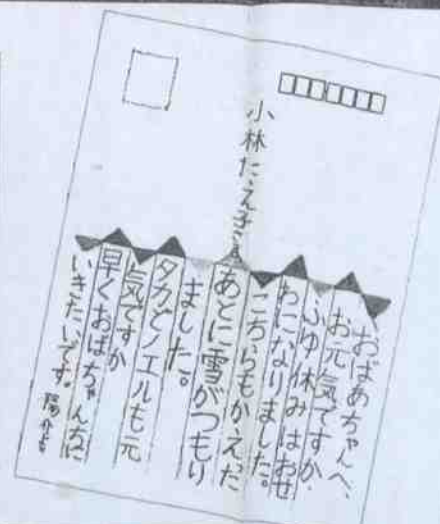 小林たえ子さま
おばあちゃんへ、
お元気ですか。
ふゆ休みはおせ
わになりました。
こちらもかえった
あとに雪がつもり
ました。
タカとノエルも元
気ですか
早くおばちゃんちに
いきたいです。
陽介より